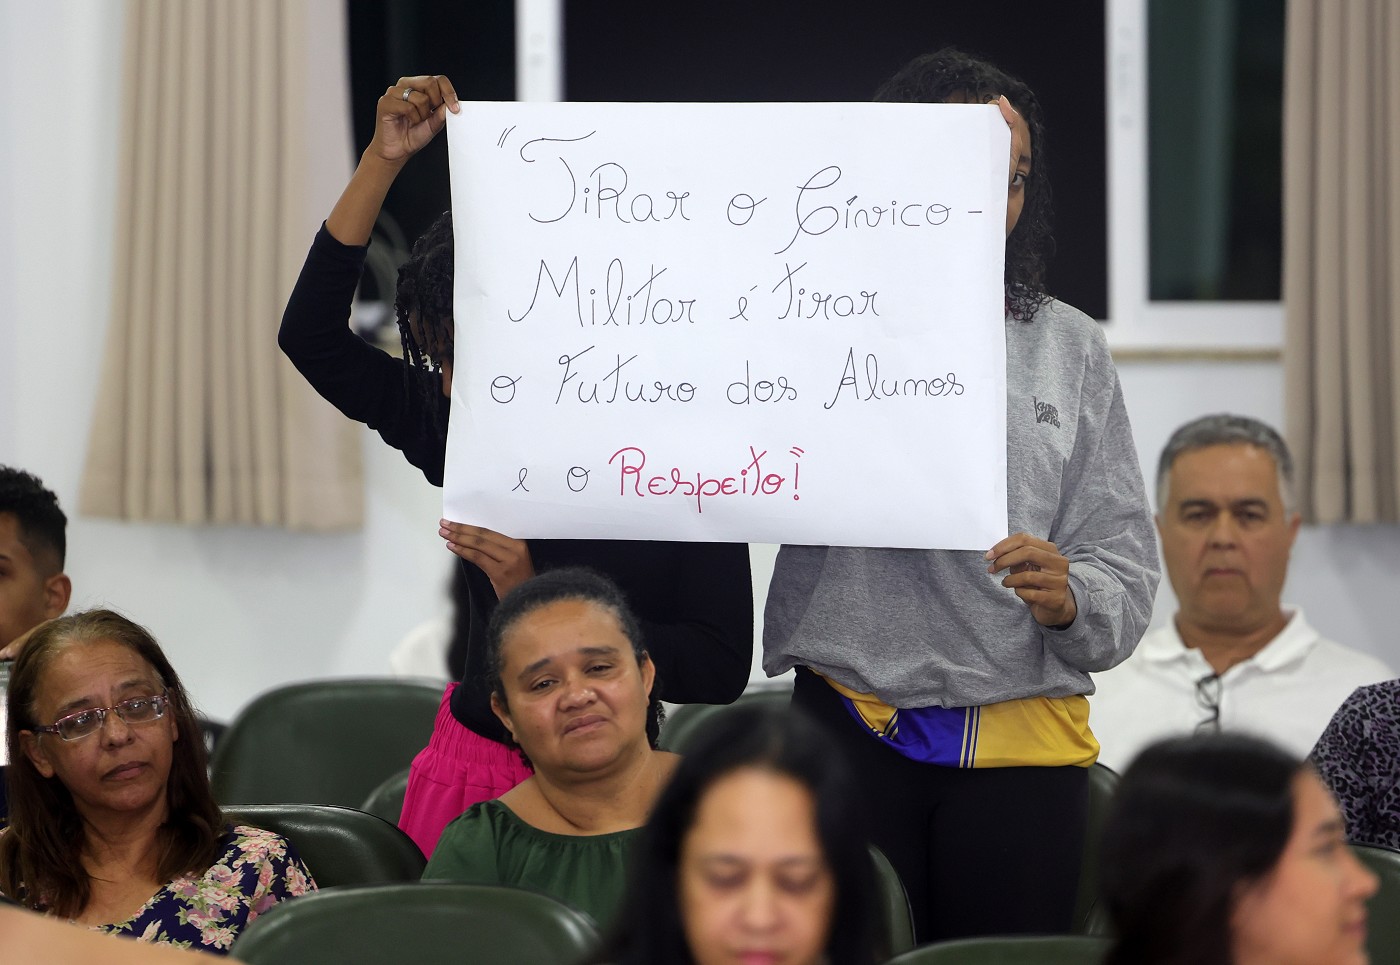 "Tirar o Cívico-
Militar é tirar
o Futuro dos Alunos
e o Respeito!"